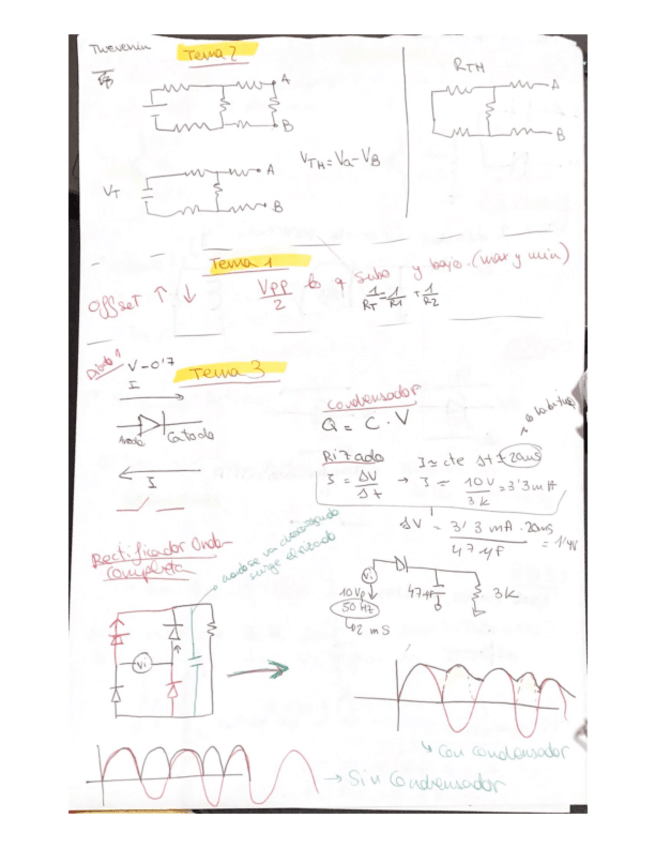 Thevenin
Tema 2
A
B
RTH
A
B
VTH = Va - VB
VT
A
B
Tema 1
Offset ↑ ↓
Vpp/2 lo q sube y baja. (max y min)
1/RT = 1/R1 + 1/R2
V-0'7
Tema 3
I
Anodo
Catodo
I
Condensador
Q = C · V
Rizado
I = ΔV/Δt → I ≈ 10V/3k = 3'3mA
I ≈ cte Δt ≈ 20ms
ΔV = 3'3 mA · 20ms / 47μF = 1'4V
Rectificador Onda
completa
surge el rizado
Vi
Vi
10Vp
50 Hz
↳ 2 mS
47μF
3K
↳ Con condensador
→ Sin Condensador